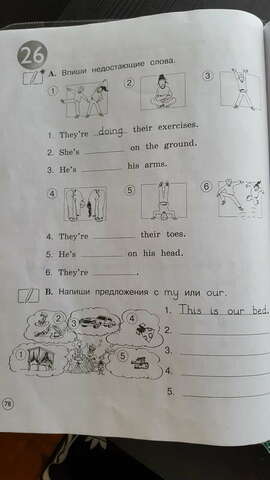 26
A. Впиши недостающие слова.
1 2 3
1. They're doing their exercises.
2. She's ________ on the ground.
3. He's ________ his arms.
4 5 6
4. They're ________ their toes.
5. He's ________ on his head.
6. They're ________.
B. Напиши предложения с my или our.
1. This is our bed.
2.
3.
4.
5.
2 3 4
1 5
78